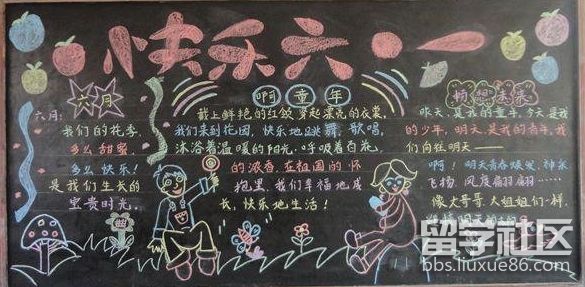 快乐六·一
六月
六月:
我们的花季,
多么甜蜜,
多么快乐!
是我们生长的
宝贵时光。
啊 童年
戴上鲜艳的红领 穿起漂亮的衣裳,
我们来到花园, 快乐地跳舞、歌唱,
沐浴着温暖的阳光, 呼吸着百花
的浓香, 在祖国的怀
抱里, 我们幸福地成
长, 快乐地生活!
畅想未来
昨天,是我的童年,今天是我
的少年, 明天,是我的青年,我
们向往明天——
啊! 明天青春焕发,神采
飞扬, 风度翩翩……
像大哥哥 大姐姐们一样,
留学社区
bbs.liuxue86.com